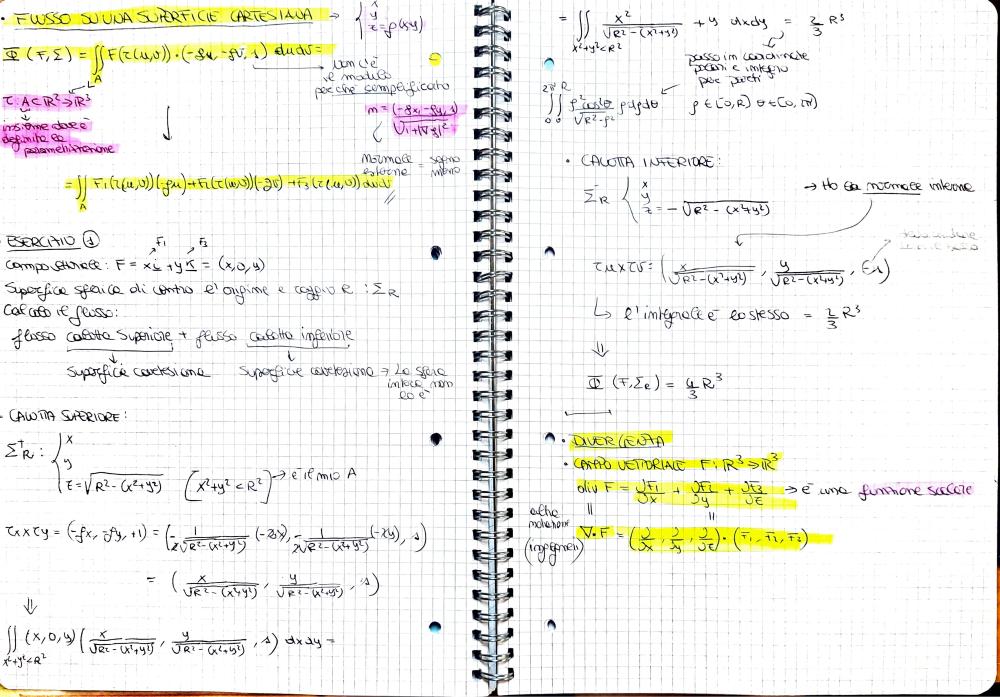 • FLUSSO SU UNA SUPERFICIE CARTESIANA → { x
y
z = f(x,y)
Φ (F, Σ) = ∬_A F(τ(u,v)) · (-fu, -fv, 1) du dv =
non c'è il modulo perché semplificato
τ: A ⊂ R² → R³
insieme dove è definita la parametrizzazione
n = (-fx, -fy, 1) / √(1+|∇f|²)
normale esterna = segno interno
= ∬_A F1(τ(u,v))(-fu) + F2(τ(u,v))(-fv) + F3(τ(u,v)) du dv
ESERCIZIO ①
F1 F3
campo vettoriale: F = x i + y k = (x, 0, y)
Superfice sferica di centro l'origine e raggio R : Σ_R
Calcolo il flusso:
flusso calotta superiore + flusso calotta inferiore
Superficie cartesiana Superficie cartesiana → La sfera intera non lo è
• CALOTTA SUPERIORE:
Σ⁺_R : { x
y
z = √(R² - (x²+y²)) [x²+y² < R²] → è il mio A
τx × τy = (-fx, -fy, +1) = (-1/(2√(R²-(x²+y²))) (-2x), -1/(2√(R²-(x²+y²))) (-2y), 1)
= (x/√(R²-(x²+y²)), y/√(R²-(x²+y²)), 1)
⇓
∬_{x²+y²<R²} (x, 0, y) (x/√(R²-(x²+y²)), y/√(R²-(x²+y²)), 1) dx dy =
= ∬_{x²+y²<R²} x²/√(R²-(x²+y²)) + y dx dy = 2/3 R³
passo in coordinate polari e integro per parti
∫₀^{2π} ∫₀^R ρ²cos²θ/√(R²-ρ²) ρ dρ dθ ρ ∈ [0,R) θ ∈ [0, 2π)
• CALOTTA INFERIORE:
Σ⁻_R { x
y
z = -√(R² - (x²+y²))
→ Ho la normale interna
τu × τv = (x/√(R²-(x²+y²)), y/√(R²-(x²+y²)), -1)
↳ l'integrale è lo stesso = 2/3 R³
⇓
Φ (F, Σ_R) = 4/3 R³
• DIVERGENZA
• CAMPO VETTORIALE F: R³ → R³
div F = ∂F1/∂x + ∂F2/∂y + ∂F3/∂z → è una funzione scalare
altra notazione (ingegneri)
∇·F = (∂/∂x, ∂/∂y, ∂/∂z) · (F1, F2, F3)